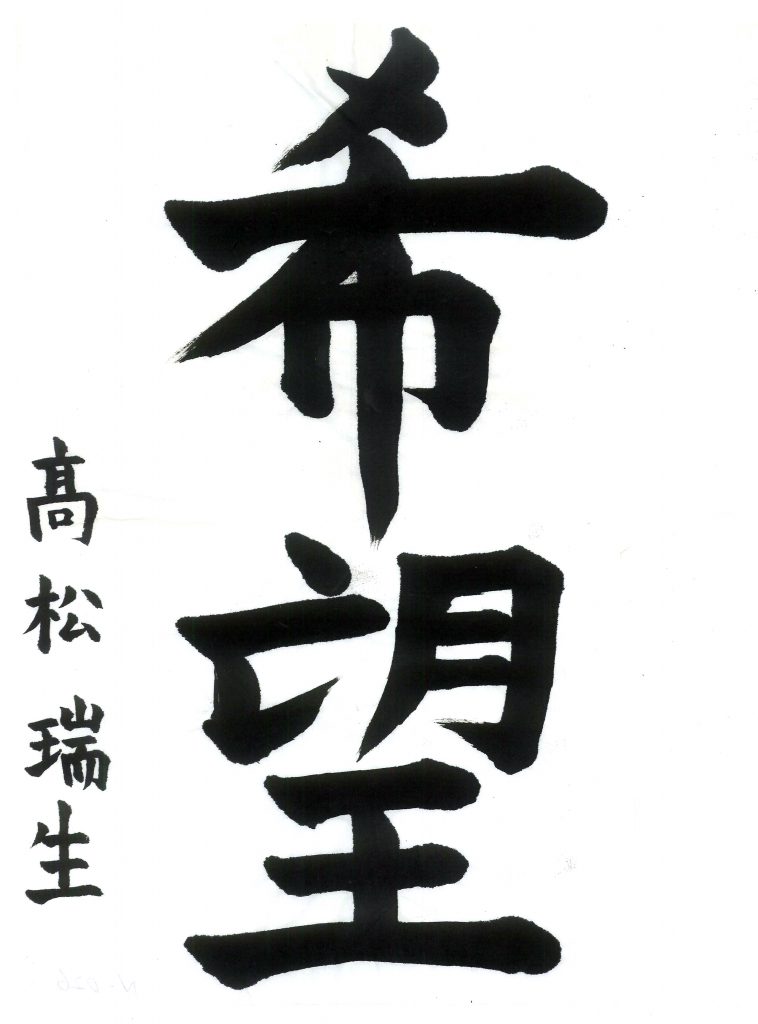 希望
高松瑞生